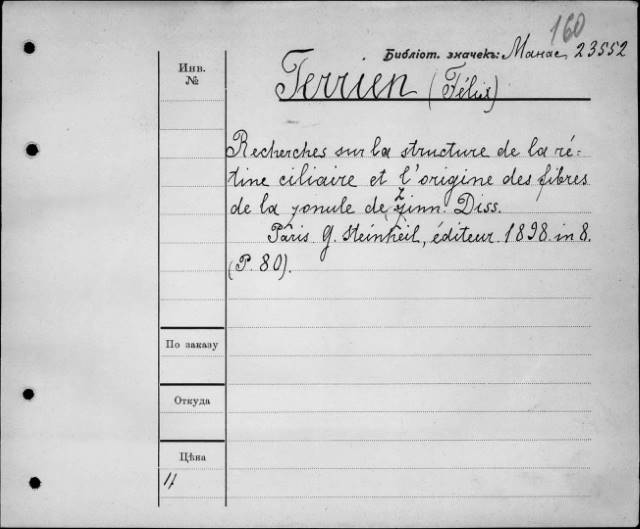 160
Библіот. значекъ: Манас, 23552
Инв.
№
Terrien (Félix)
Recherches sur la structure de la ré-
tine ciliaire et l'origine des fibres
de la zonule de Zinn. Diss.
Paris G. Steinheil, éditeur. 1898. in 8.
(P. 80).
По заказу
Откуда
Цѣна